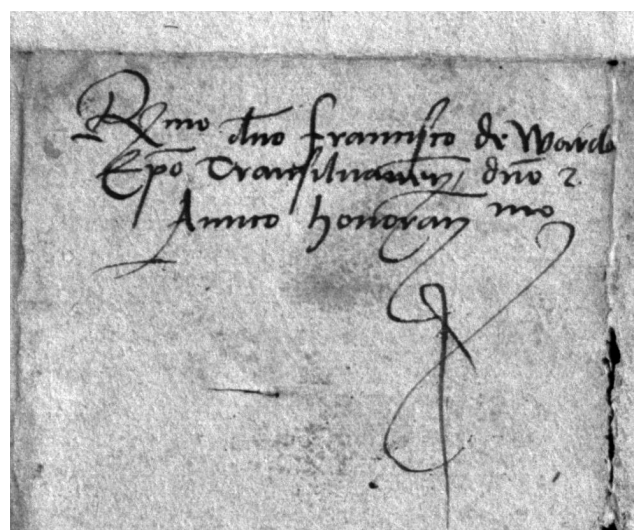 Rmo dno Francisco de Warda
Epo Transiluanen dno 2
Amico honoran mo